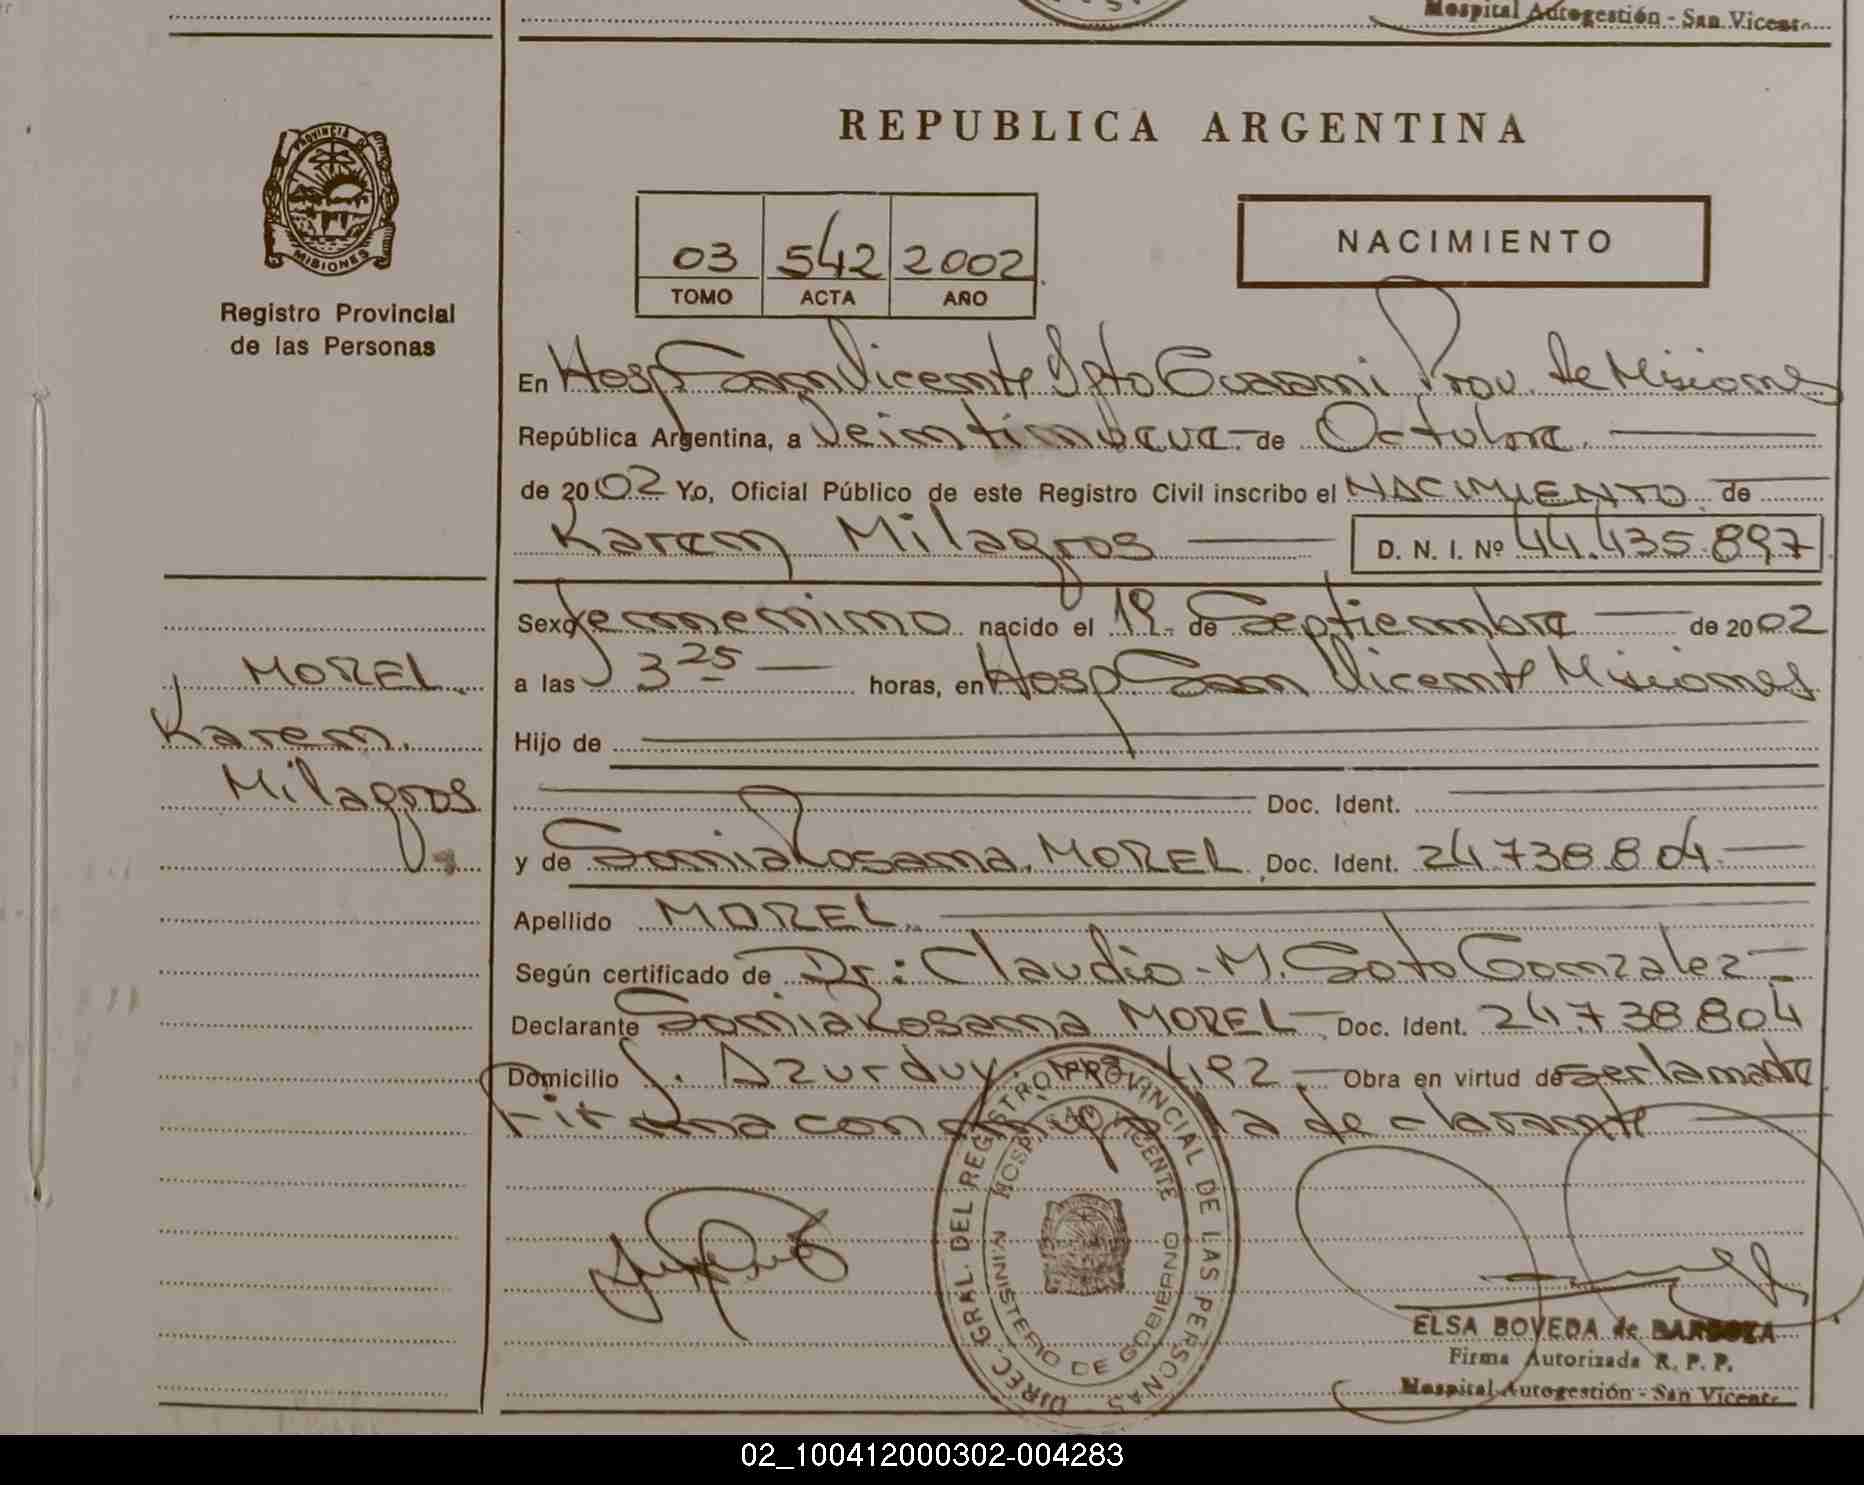 Hospital Autogestión - San Vicente
PROVINCIA DE
MISIONES
Registro Provincial
de las Personas
REPUBLICA ARGENTINA
03 542 2002
TOMO ACTA AÑO
NACIMIENTO
En Hosp San Vicente Dpto Guarani Prov. de Misiones
República Argentina, a Veintinueve de Octubre
de 2002 Yo, Oficial Público de este Registro Civil inscribo el NACIMIENTO de
Karem Milagros D. N. I. Nº 44.435.897
Sexo femenino nacido el 19 de Septiembre de 2002
a las 3 25 horas, en Hosp San Vicente Misiones
Hijo de
Doc. Ident.
y de Sonia Rosana MOREL Doc. Ident. 24738804
Apellido MOREL
Según certificado de Dr: Claudio M. Soto Gonzalez
Declarante Sonia Rosana MOREL Doc. Ident. 24738804
Domicilio J. Azurduy Nº 492 Obra en virtud de ser la madre
Firma conmigo la declarante
MOREL
Karem
Milagros
DIREC. GRAL. DEL REGISTRO PROVINCIAL DE LAS PERSONAS
HOSP. SAN VICENTE
MINISTERIO DE GOBIERNO
ELSA BOVEDA de BARBOZA
Firma Autorizada R. P. P.
Hospital Autogestión - San Vicente
02_100412000302-004283